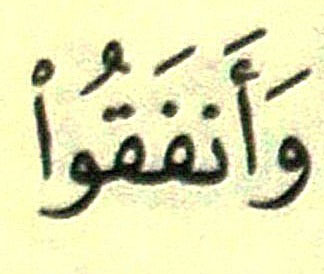 وَأَنفَقُوا۟